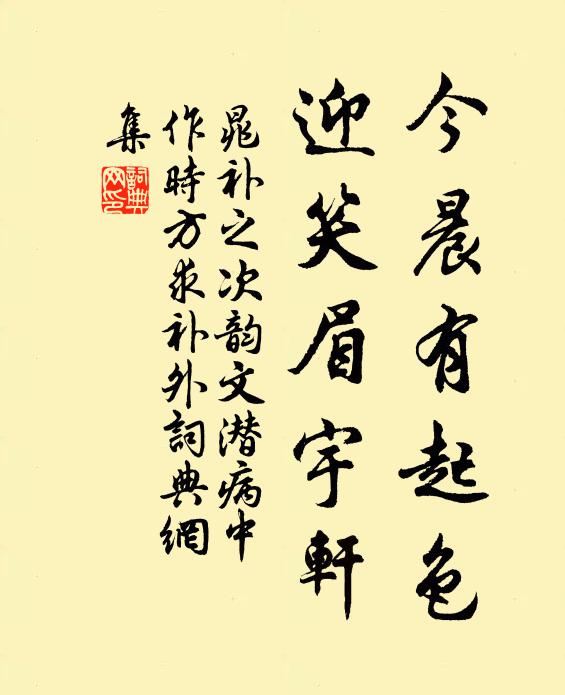 今晨有起色
迎笑眉宇軒
晁补之次韵文潜病中
作時方求补外詞典網
集
詞典
网印